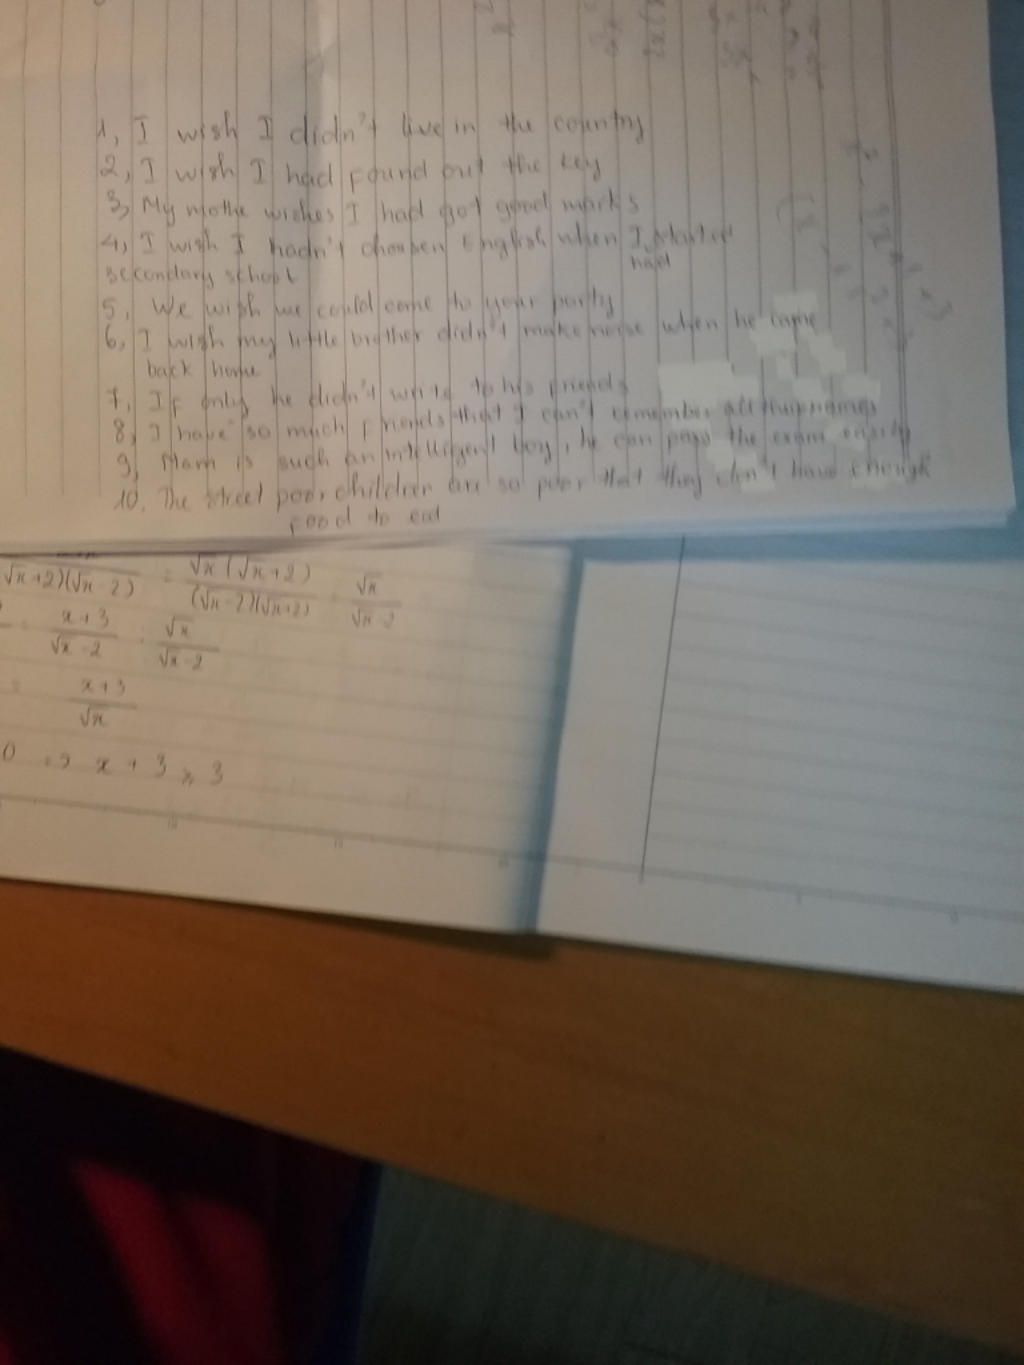 1, I wish I didn't live in the country
2, I wish I had found out the key
3, My mothe wishes I had got good marks
4, I wish I hadn't English when I started
had
secondary school
5, We wish we could come to your party
6, I wish my little brother didn't make noise when he came
back home
7, If only he didn't write to his friends
8, I have so much friends that I can't all names
9, is such an intelligent boy, he can pass the exam easily
10. The street poor children are so poor that they don't have enough
food to eat
√x+2)(√x-2) = √x(√x+2) / (√x-2)(√x+2) √x / √x-2
= x+3 / √x-2 : √x / √x-2
= x+3 / √x
0 => x + 3 ≥ 3